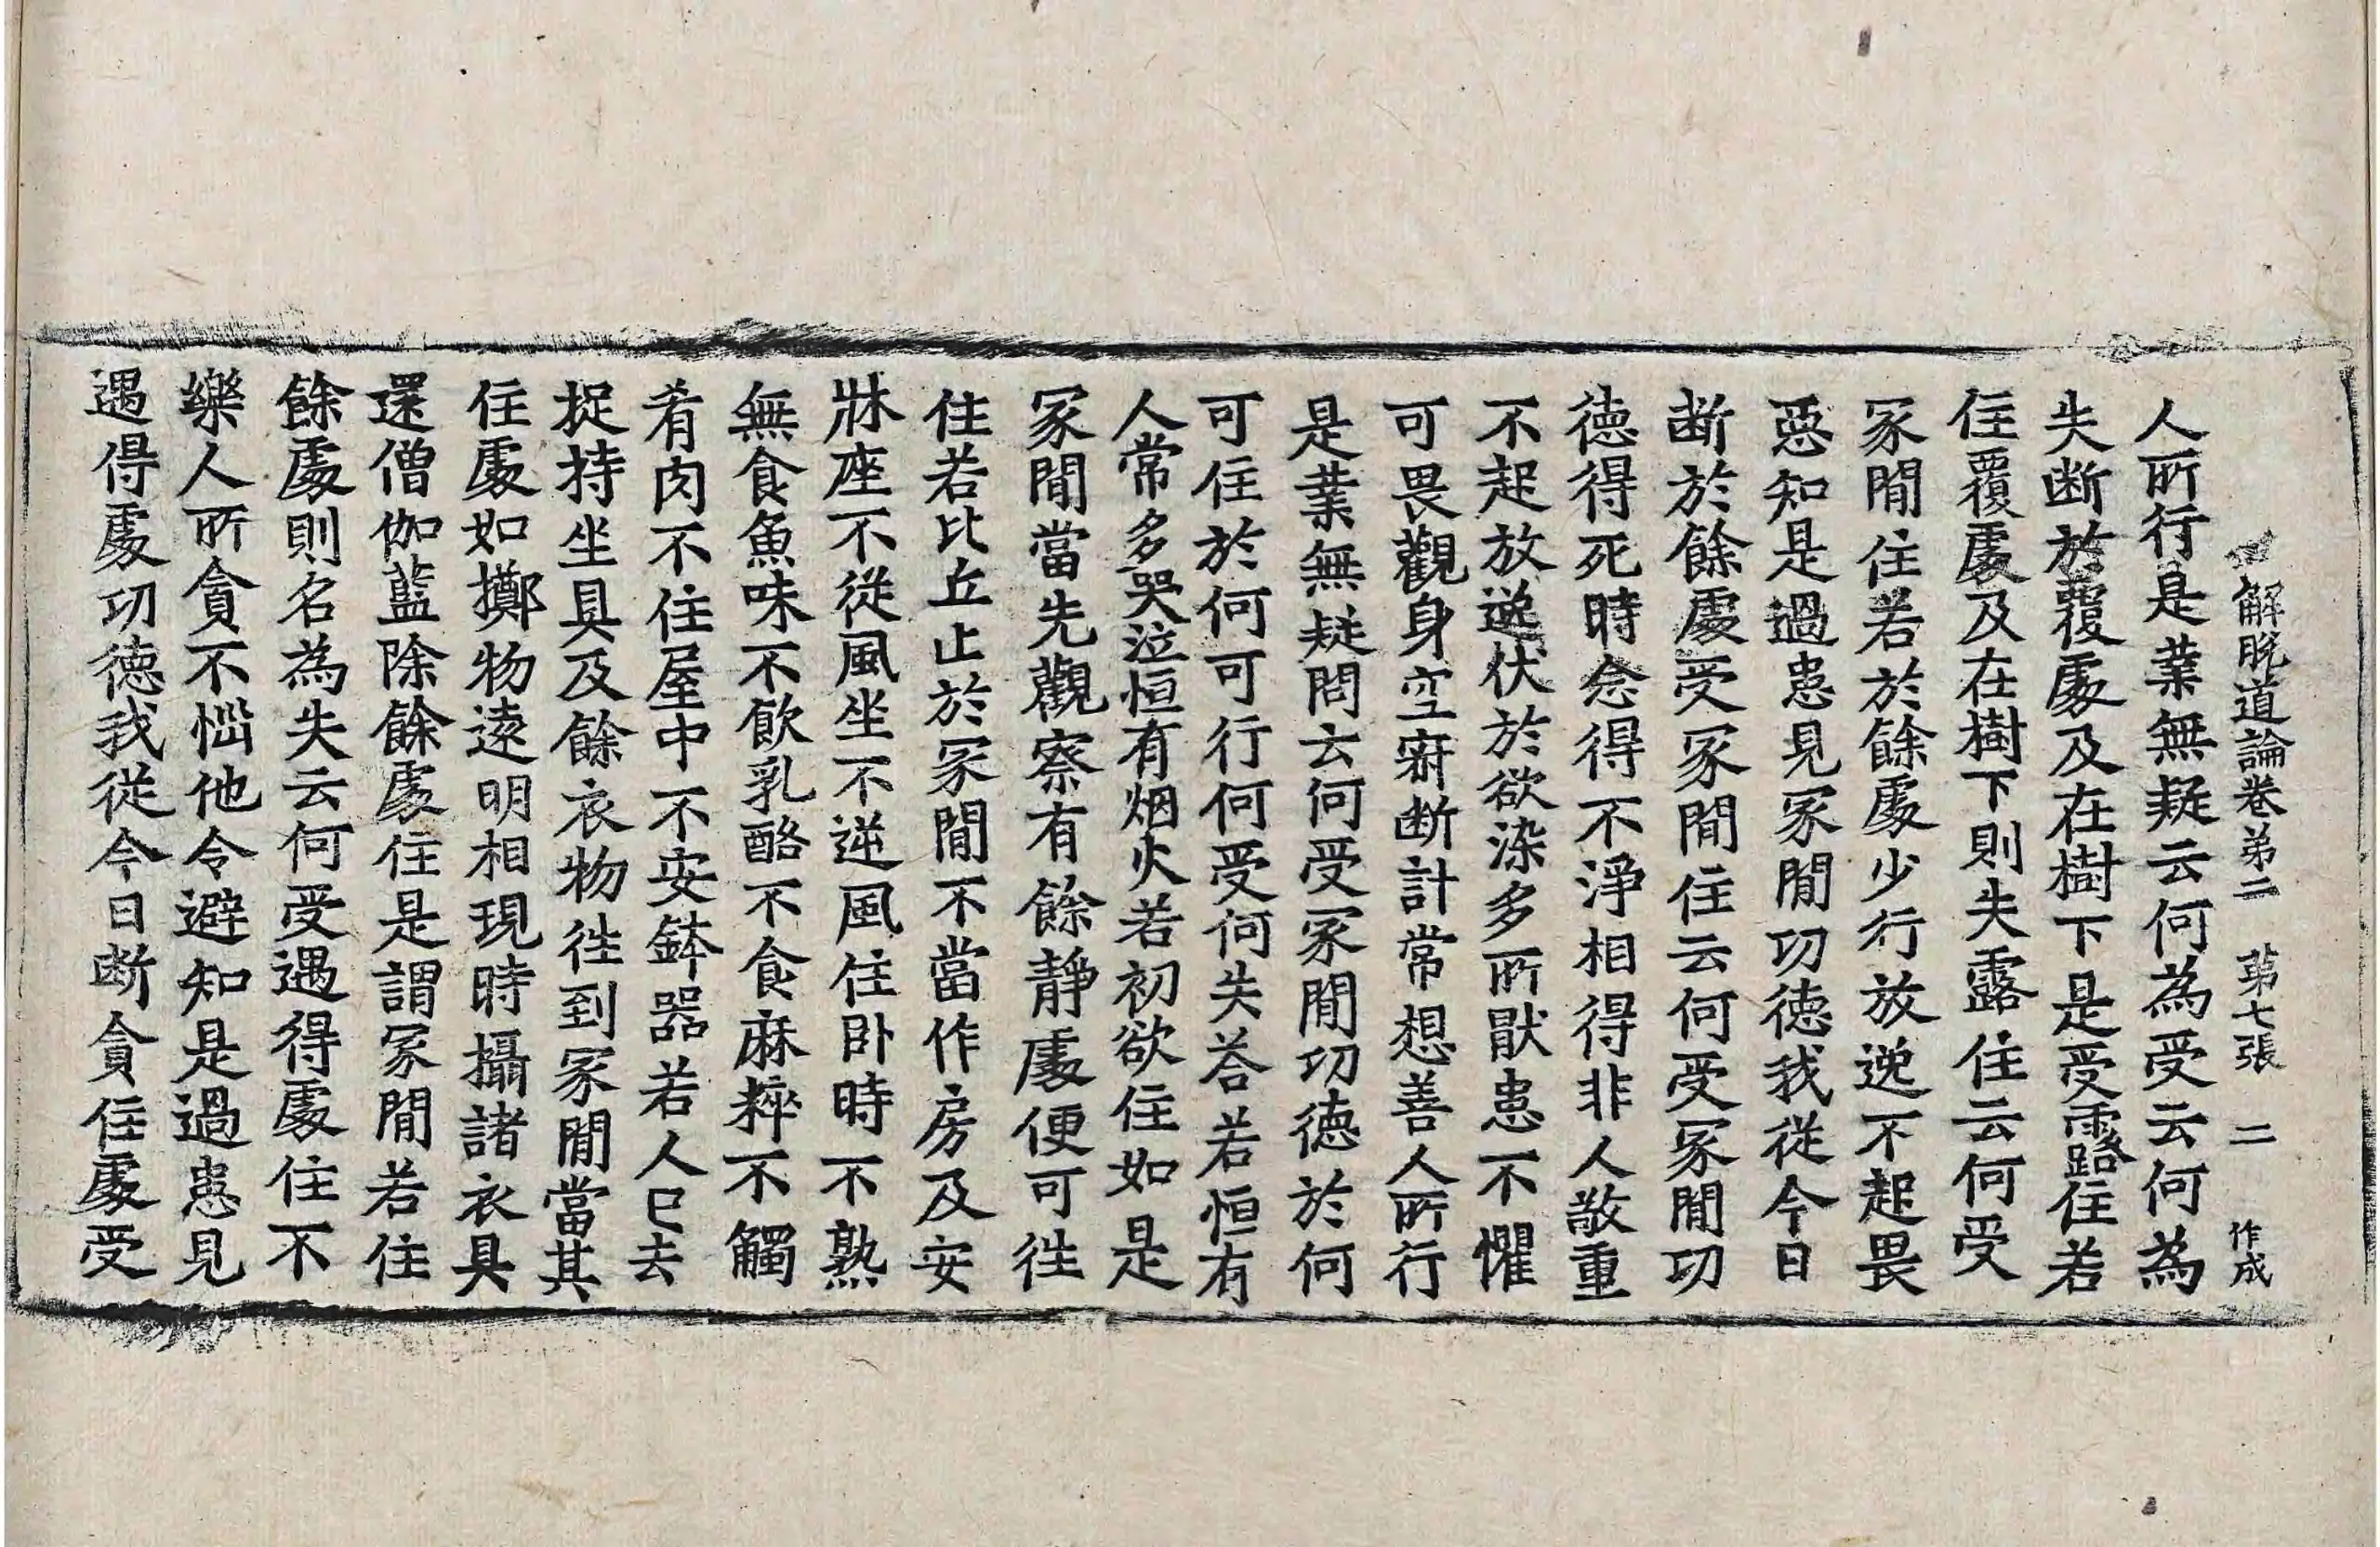 解脫道論卷第二　第七張　二　作成
人所行是業無疑云何為受云何為
失断於覆處及在樹下是受露住若
住覆處及在樹下則失露住云何受
冢閒住若於餘處少行放逸不起畏
惡知是過患見冢閒功德我從今日
断於餘處受冢閒住云何受冢閒功
德得死時念得不淨相得非人敬重
不起放逸伏於欲染多所猒患不懼
可畏觀身空寂断計常想善人所行
是業無疑問云何受冢閒功德於何
可住於何可行何受何失荅若恒有
人常多哭泣恒有烟火若初欲住如是
冢閒當先觀察有餘靜處便可徃
住若比丘止於冢閒不當作房及安
牀座不從風坐不逆風住卧時不熟
無食魚味不飲乳酪不食麻粹不觸
肴肉不住屋中不安鉢器若人已去
捉持坐具及餘衣物徃到冢閒當其
住處如擲物遠明相現時攝諸衣具
還僧伽藍除餘處住是謂冢閒若住
餘處則名為失云何受遇得處住不
樂人所貪不惱他令避知是過患見
遇得處功德我從今日断貪住處受